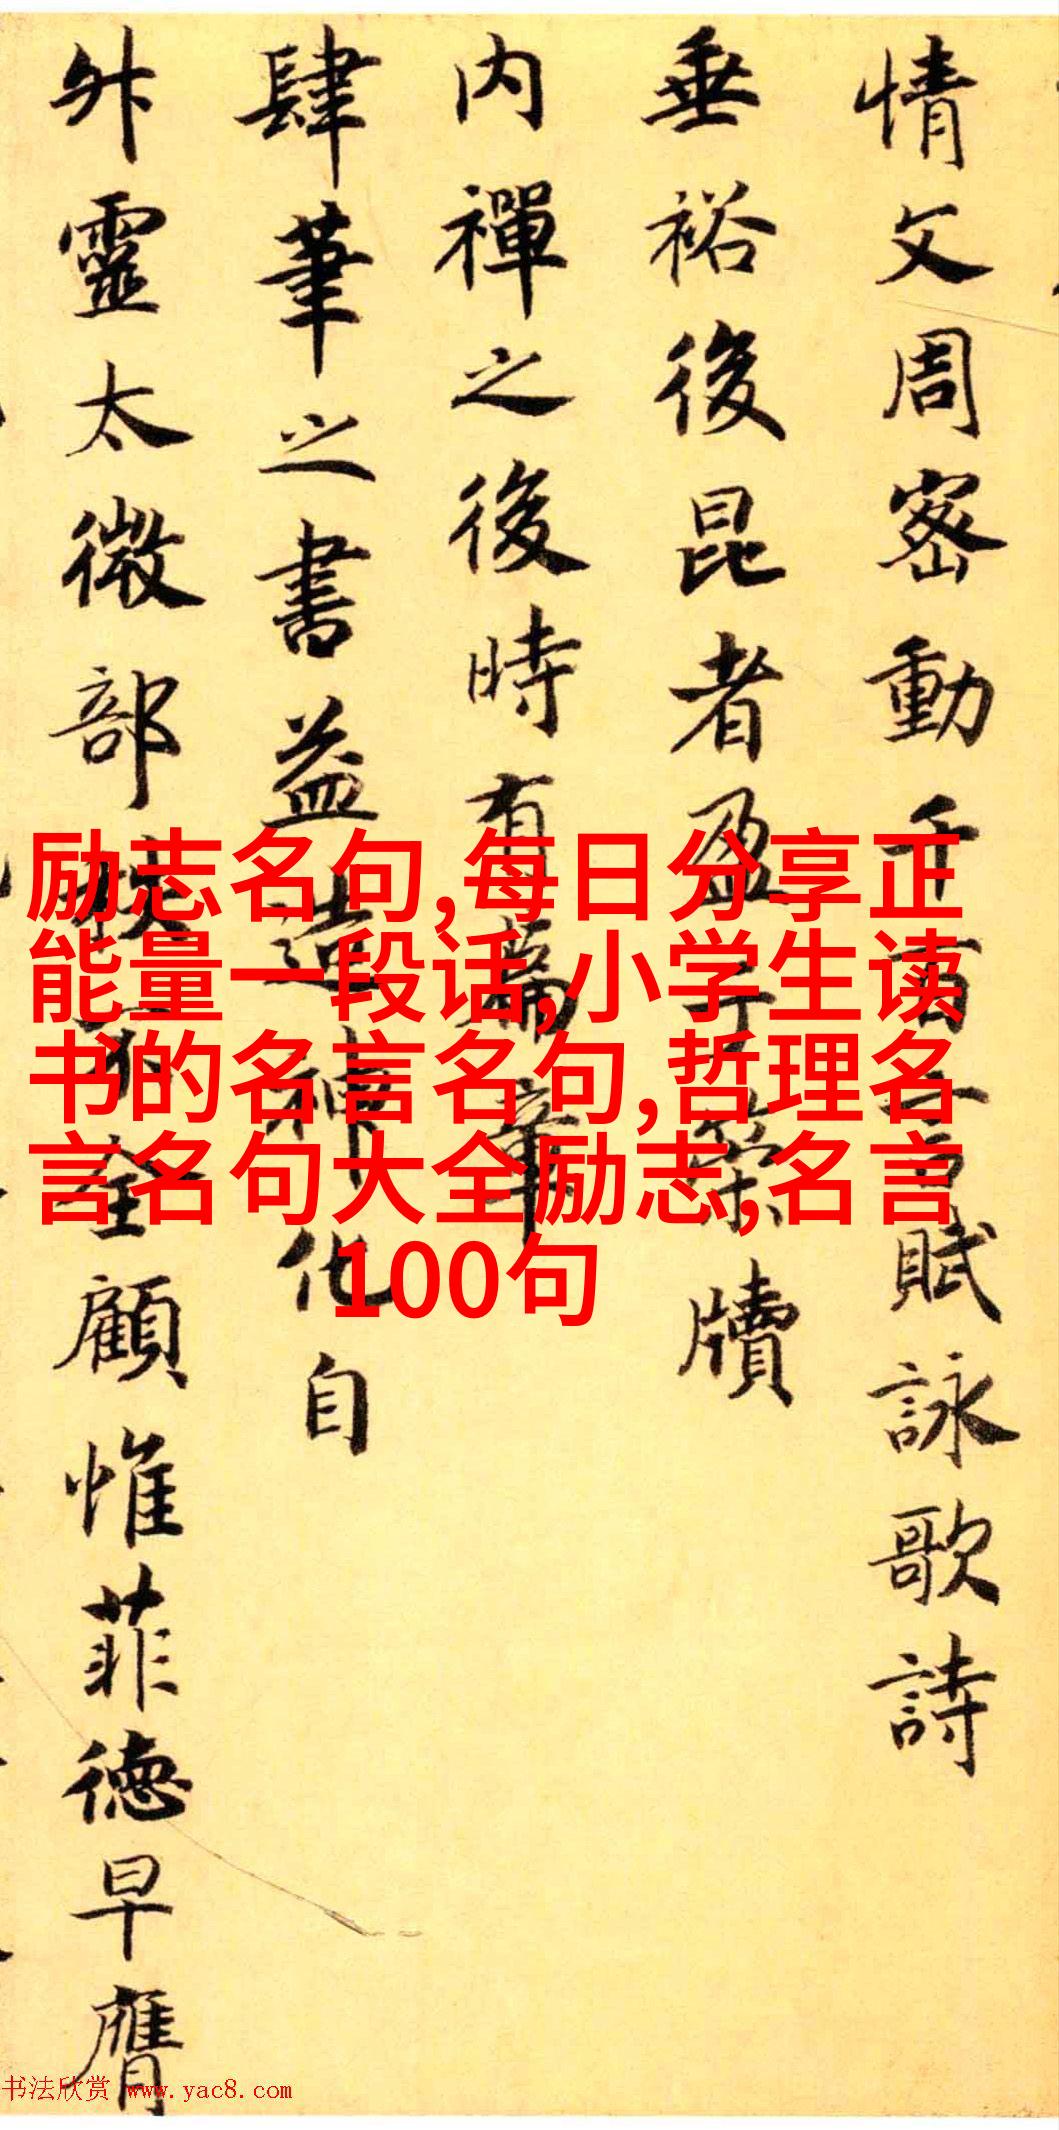 情文周密動千言賦詠歌詩
垂裕後昆者盈于牘
内禪之後時有篇章
肆筆之書益造神化自
靈太微部全顧惟菲德早膺
励志名句,每日分享正
能量一段话,小学生读
书的名言名句,哲理名
言名句大全励志,名言
100句
书法欣赏 www.yac8.com